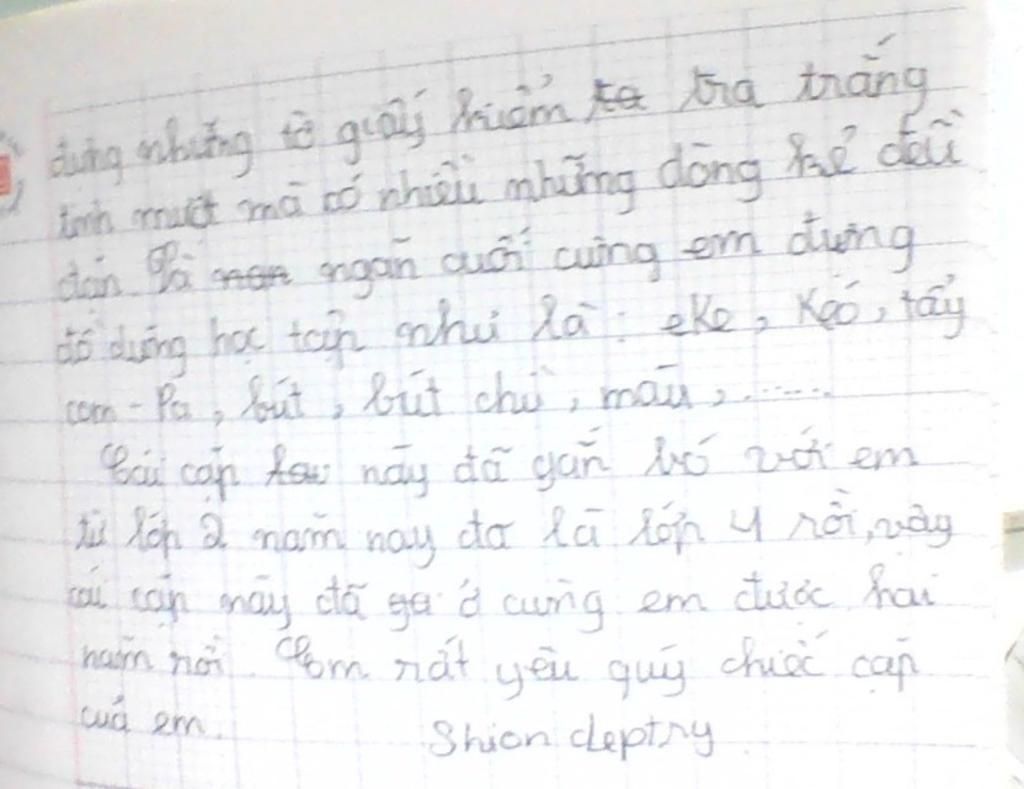 đựng những tờ giấy kiểm tra trắng
tinh mướt mà có nhiều những dòng kẻ đều
đặn. Và ngăn cuối cùng em đựng
đồ dùng học tập như là: eke, kéo, tẩy
com-Pa, bút, bút chì, màu, ......
Cái cặp này đã gắn bó với em
từ lớp 2 năm nay đã là lớp 4 rồi, vậy
cái cặp này đã ở cùng em được hai
năm rồi. Em rất yêu quý chiếc cặp
của em.
Shion deptry